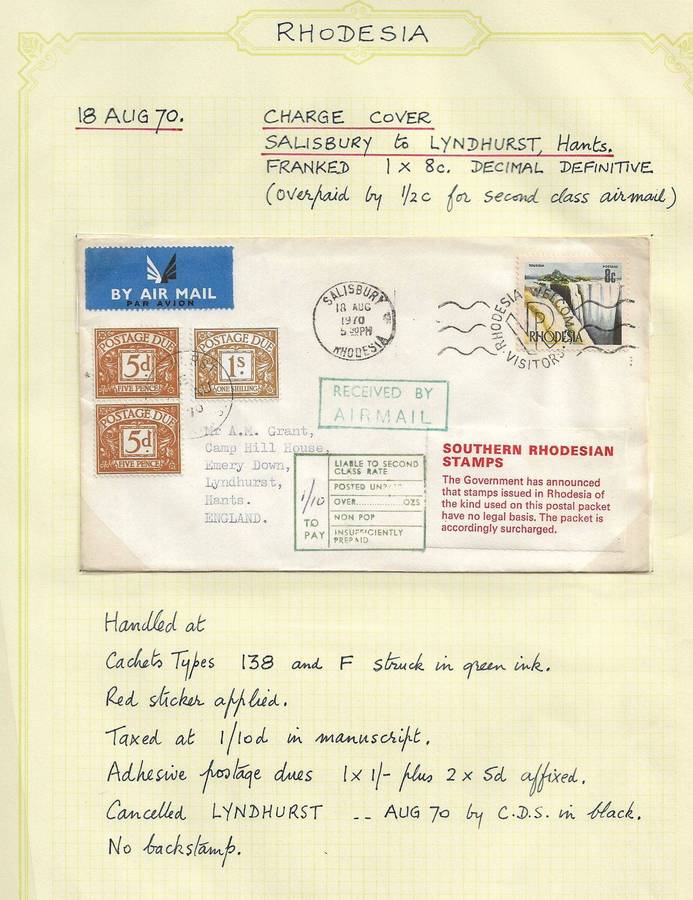 RHODESIA
18 AUG 70.
CHARGE COVER
SALISBURY to LYNDHURST, Hants.
FRANKED 1 x 8c. DECIMAL DEFINITIVE
(overpaid by ½c for second class airmail)
BY AIR MAIL
PAR AVION
SALISBURY
18 AUG
1970
5 30PM
RHODESIA
RHODESIA WELCOMES
VISITORS
8c
RHODESIA
POSTAGE DUE
5d.
FIVE PENCE
POSTAGE DUE
1s.
ONE SHILLING
POSTAGE DUE
5d.
FIVE PENCE
RECEIVED BY
AIRMAIL
Mr A.M. Grant,
Camp Hill House,
Emery Down,
Lyndhurst,
Hants.
ENGLAND.
1/10
TO
PAY
LIABLE TO SECOND
CLASS RATE
POSTED
OVER............OZS
NON POP
INSUFFICIENTLY
PREPAID
SOUTHERN RHODESIAN
STAMPS
The Government has announced
that stamps issued in Rhodesia of
the kind used on this postal packet
have no legal basis. The packet is
accordingly surcharged.
Handled at
Cachets Types 138 and F struck in green ink.
Red sticker applied.
Taxed at 1/10d in manuscript.
Adhesive postage dues 1x1/- plus 2 x 5d affixed.
Cancelled LYNDHURST -- AUG 70 by C.D.S. in black.
No backstamp.